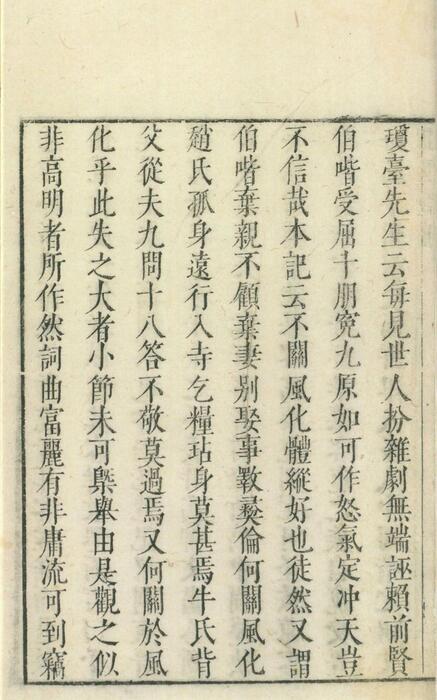 瓊臺先生云每見世人扮雜劇無端誣賴前賢
伯喈受屈十朋寃九原如可作怒氣定冲天豈
不信哉本記云不關風化體縱好也徒然又謂
伯喈棄親不顧棄妻别娶事斁彞倫何關風化
趙氏孤身遠行入寺乞糧玷身莫甚焉牛氏背
父從夫九問十八答不敬莫過焉又何關於風
化乎此失之大者小節未可槩舉由是觀之似
非高明者所作然詞曲富麗有非庸流可到竊